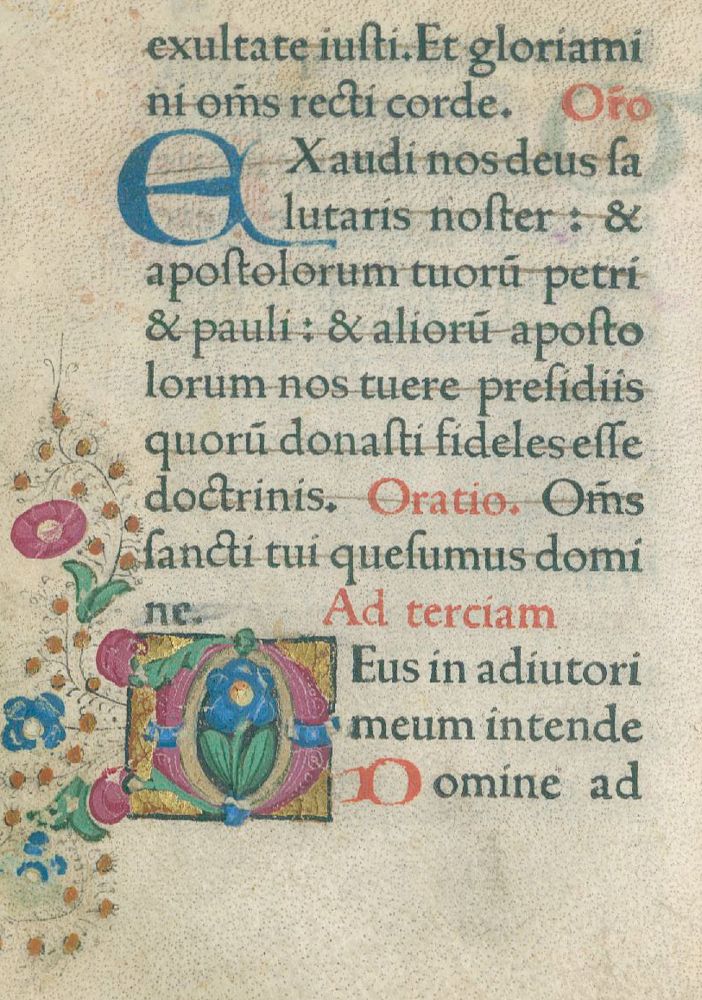 exultate iusti. Et gloriami
ni om̄s recti corde. Or̄o
EXaudi nos deus sa
lutaris noster : &
apostolorum tuorū petri
& pauli : & aliorū aposto
lorum nos tuere presidiis
quorū donasti fideles esse
doctrinis. Oratio. Om̄s
sancti tui quesumus domi
ne. Ad terciam
DEus in adiutori
meum intende
Domine ad